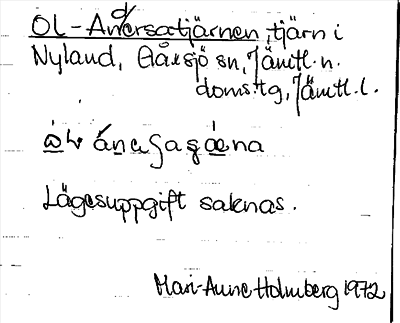 Ol-Andersatjärnen, tjärn i
Nyland, Håsjö sn, Jämtl. n.
doms.tg, Jämtl. l.
Lägesuppgift saknas.
Mari-Anne Holmberg 1972